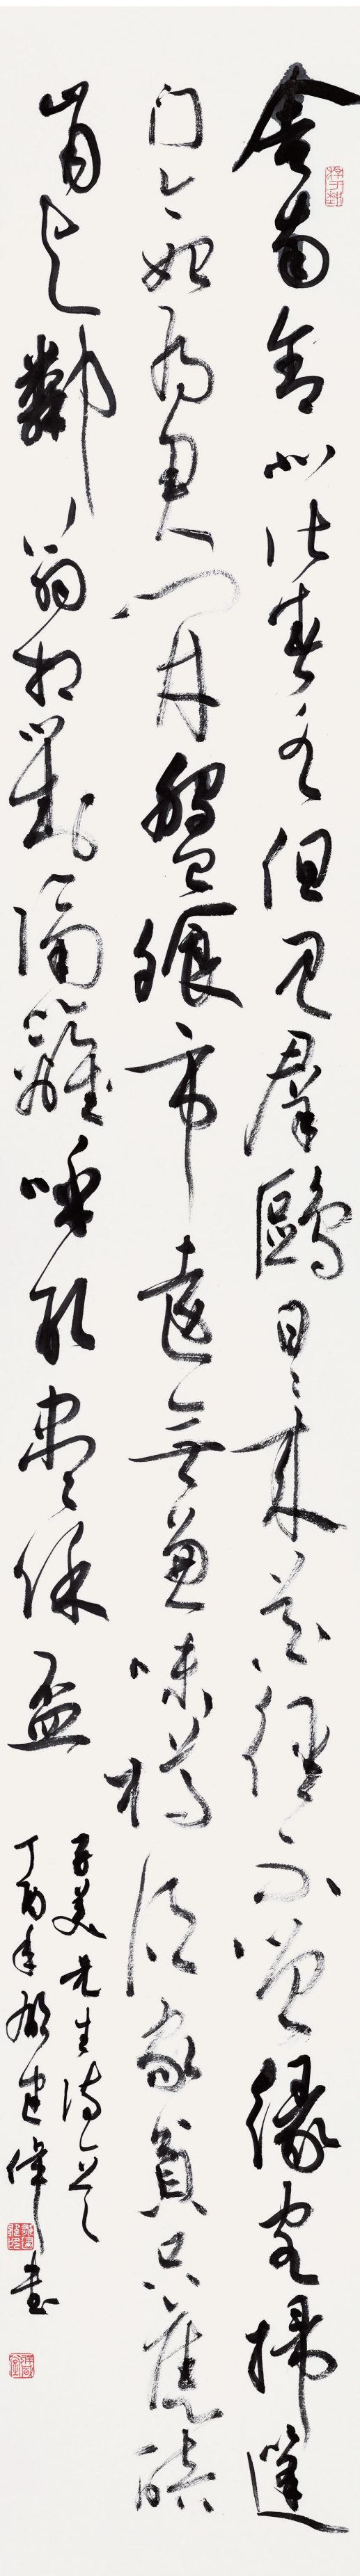 舍南舍北皆春水但見群鷗日〻來花徑不曾緣客掃蓬
门今始為君開盤飧市遠無兼味樽酒家貧只舊醅
肯与鄰翁相對隔籬呼取盡餘盃
子美先生诗一首
丁酉年建偉書